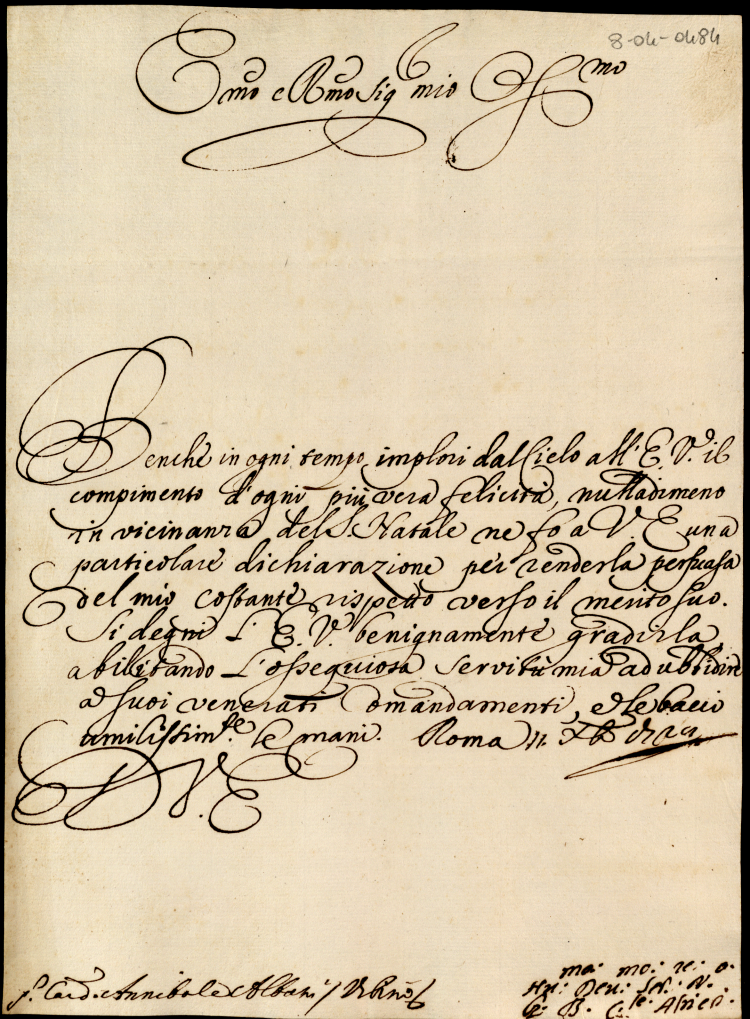 8-04-0484
Emo e Rmo Sig mio Ossmo
Benche in ogni tempo implori dal Cielo all'E. V.ª il
compimento d'ogni più vera felicità, nulladimeno
in vicinanza del S. Natale ne fo a V. E una
particolare dichiarazione per renderla persuasa
del mio costante rispetto verso il merito suo.
Si degni L'E. V.ª benignamente gradirla
abilitando L'ossequiosa servitù mia ad ubbidire
a suoi venerati Comandamenti, e le bacio
umilissimte le mani. Roma
D V. E
Card. Annibale Albani / Urbino
ma: mo: re: o:
Hu: Dev: Ser: V.
G: B. C:le Altieri.